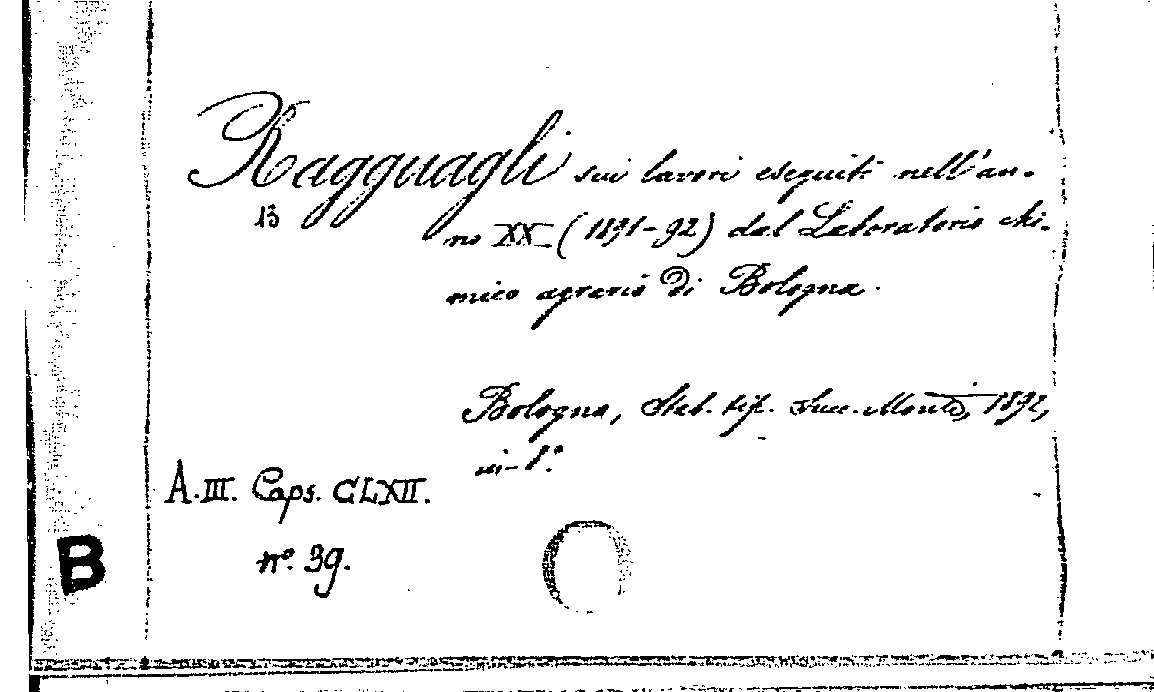 Ragguagli sui lavori eseguiti nell'an-
13
no XX (1891-92) dal Laboratorio chi-
mico agrario di Bologna.
Bologna, Stab. tip. Succ. Monti, 1892,
in-8°.
A.III. Caps. CLXII.
n.° 39.
B